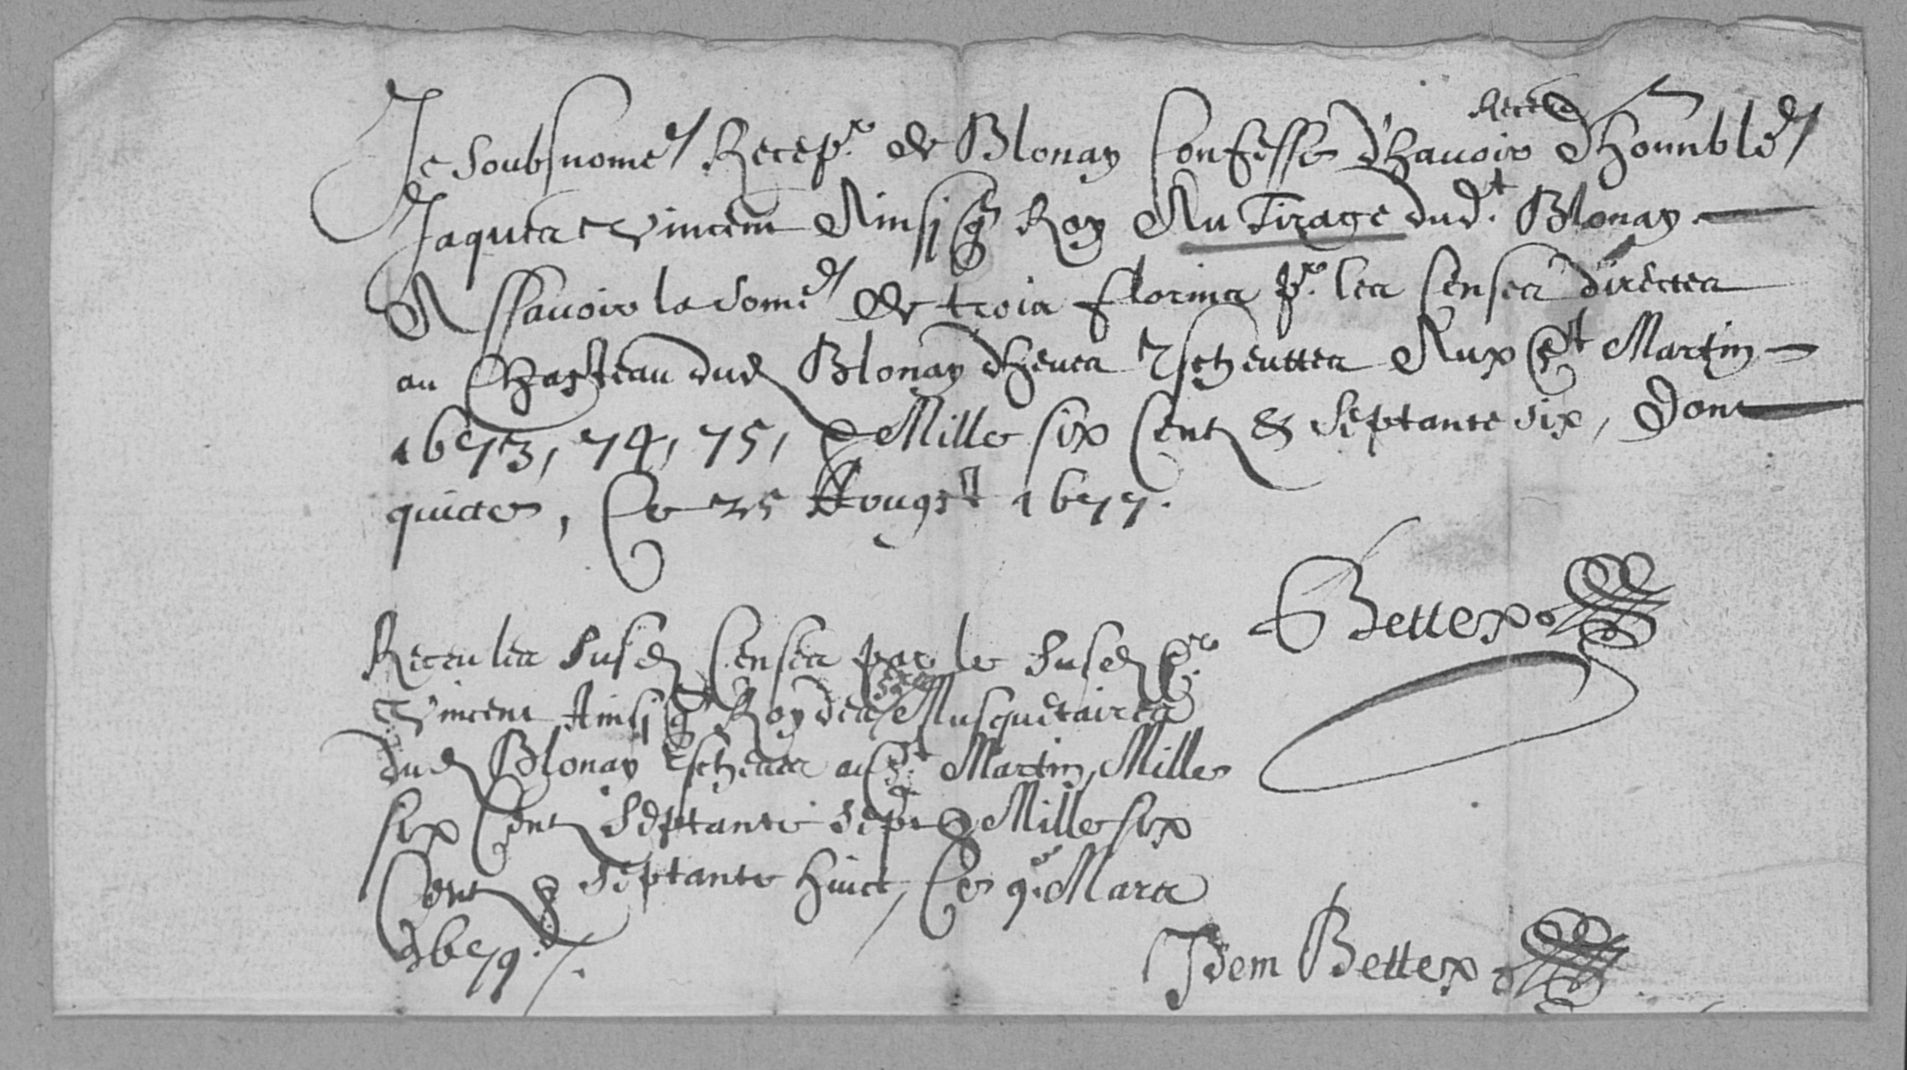 Je Soubsnomé Recep.r de Blonay Confesse d'havoir Receu d'hounble
Jaques Vincent Ainsi qu Roy Au Tirage dud.t Blonay
Assavoir la Somé de trois florins p.r les Censes directes
au Chasteau dud Blonay dheues Escheuttes Aux St Martin
1673, 74, 75, & Mille six Cent & Septante six, Dont
quitte, Ce 25 Aougst 1677.
Bettex
Receu les Susd Censes par le Susd Sr
Vincent Ainsi qu Roy des Srs Musquetaires
dud Blonay Escheues a St Martin, Mille
six Cent Septante Sept & Mille six
Cent & Septante huict, Ce 9.e Mars
1679.
Idem Bettex